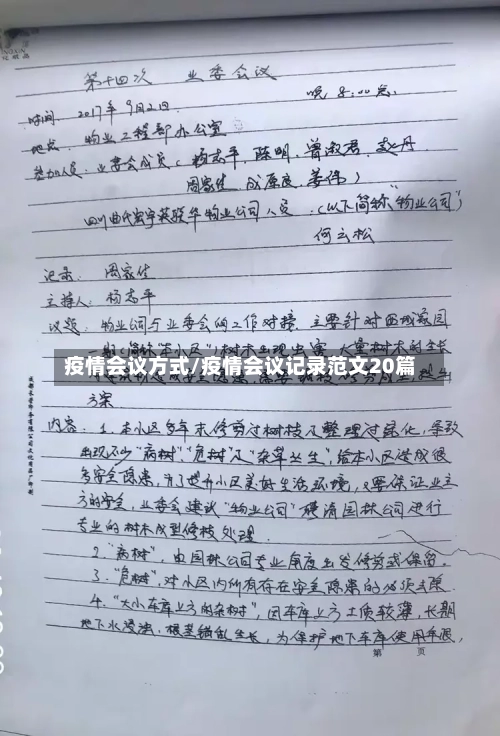 第十四次 业委会议
时间: 2017年9月2日 晚8:00点
地点: 物业工程部办公室
参加人员: 业委会成员(杨志平、陈明、曾淑君、赵丹
周家生 成厚度 姜伟)
四川 物业公司人员 (以下简称"物业公司")
何云松
记录: 周家生
主持人: 杨志平
议题: 物业公司与业委会的工作对接,主要针对 家园
疫情会议方式/疫情会议记录范文20篇
方案
内容: 1. 本小区多年未修剪过树枝及整理过绿化,导致
出现不少"病树","危树"及"杂草丛生",给本小区造成很
多安全隐患,为了提升小区美好生活环境,及要保证业主
方的安全,业委会建议"物业公司"聘请园林公司进行
专业的树木成型修枝处理。
2."病树",由园林公司专业角度出发修剪或保留。
3."危树",对小区内所有存在安全隐患的必须去除
4."大小车库上方的杂树",因车库上方土质较薄,长期
地下水浸法,根茎错乱生长,为保护地下车库使用年限,
第 页